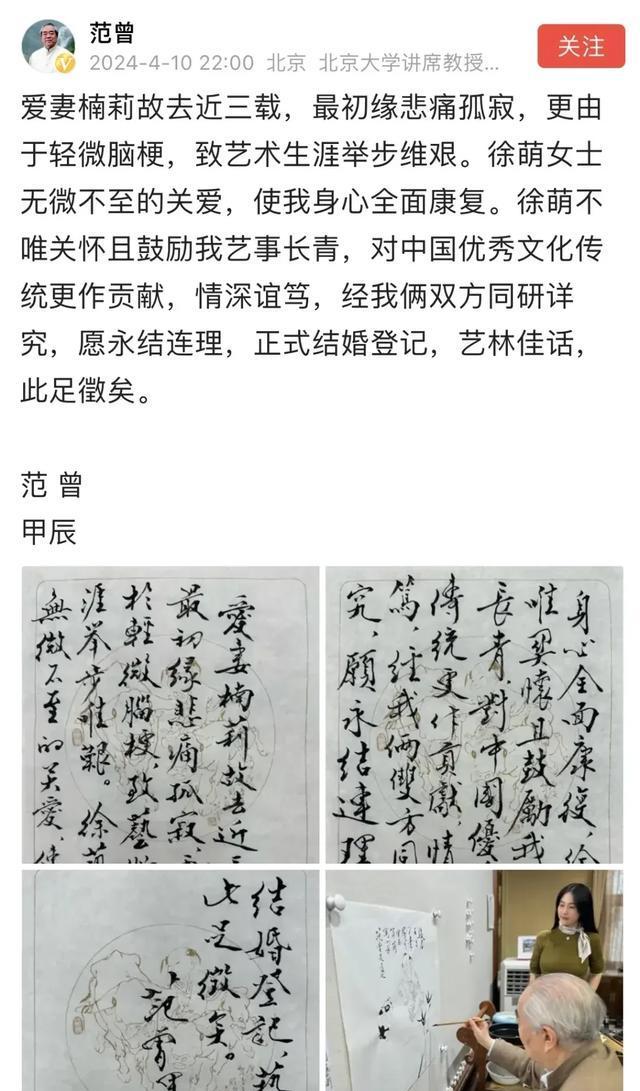 范曾
2024-4-10 22:00 北京 北京大学讲席教授...
关注
爱妻楠莉故去近三载，最初缘悲痛孤寂，更由
于轻微脑梗，致艺术生涯举步维艰。徐萌女士
无微不至的关爱，使我身心全面康复。徐萌不
唯关怀且鼓励我艺事长青，对中国优秀文化传
统更作贡献，情深谊笃，经我俩双方同研详
究，愿永结连理，正式结婚登记，艺林佳话，
此足徵矣。
范 曾
甲辰
愛妻楠莉故去近三
最初缘悲痛孤寂，
於輕微腦梗，致藝
涯举步维艱。徐萌
無微不至的关爱，使
身心全面康復，徐
唯関懷且鼓勵我
長青，對中國優
傳統更作貢獻，情
篤，經我俩雙方同
究，願永结連理
结婚登記，藝
此足徵矣。
范曾